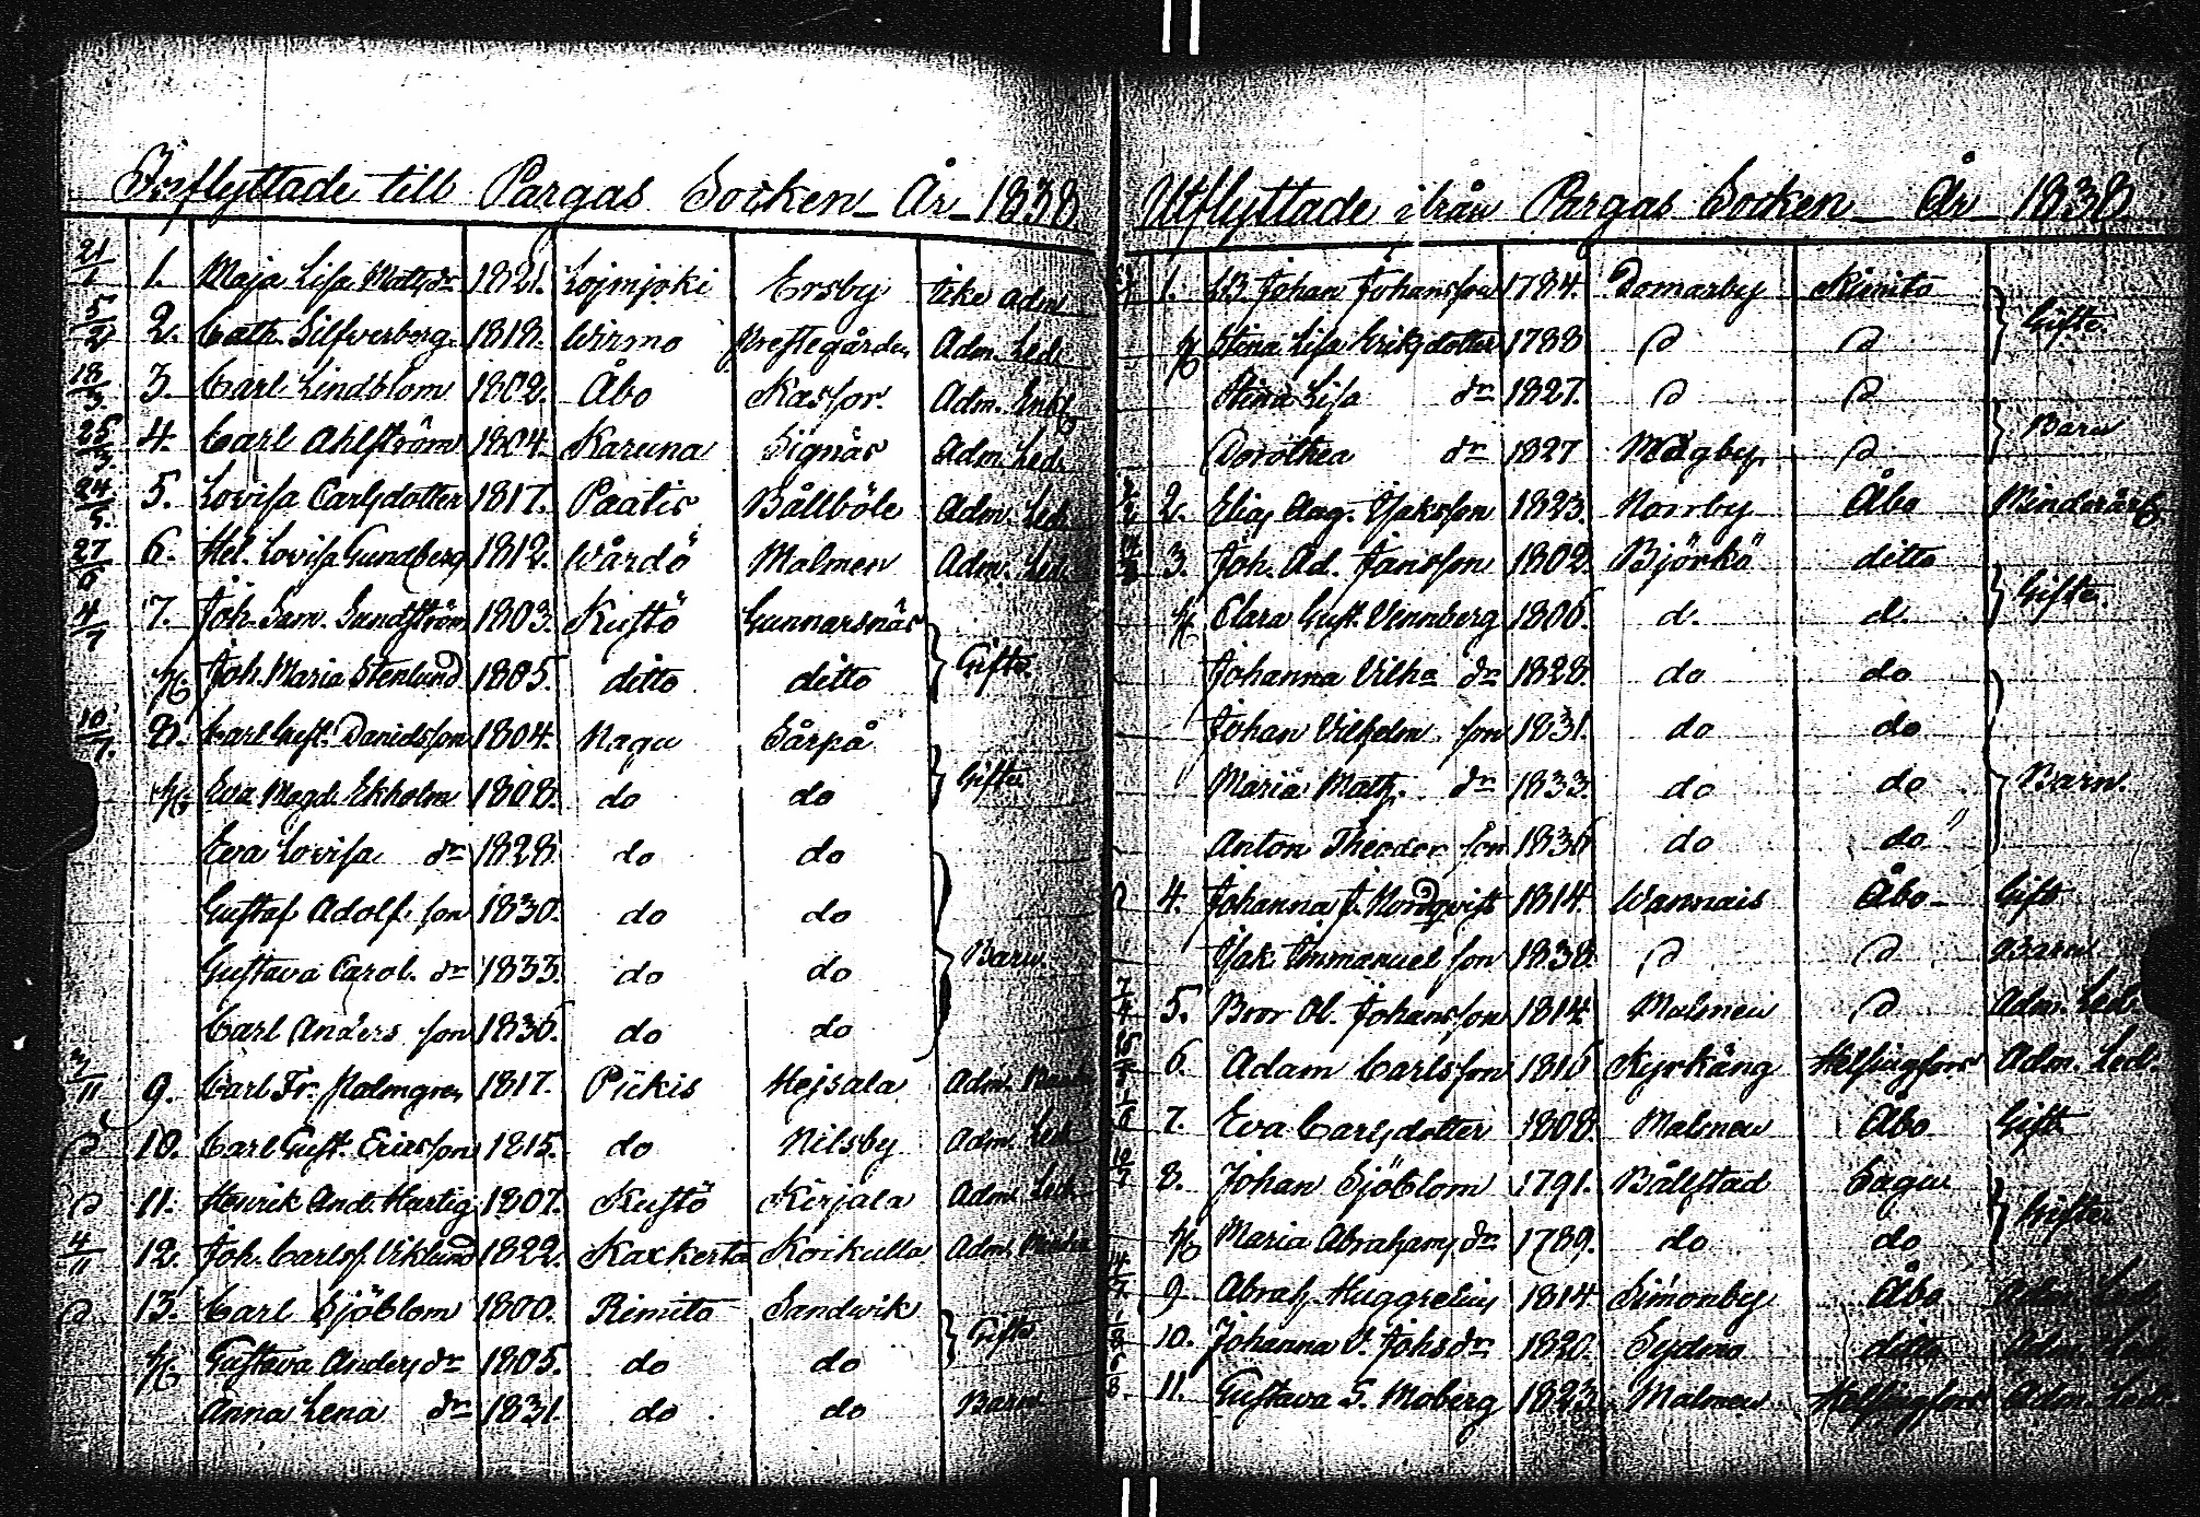 Inflyttade till Pargas Socken - År - 1838
21/1 1. Maja Lisa Mattsdr 1821. Lojmjoki Ersby icke adm
5/2 2. Cath. Silfverberg 1818. Wirmo Prestegården Adm. Led.
18/3. 3. Carl Lindblom 1802. Åbo Kassor. Adm. Enkl.
25/3. 4. Carl Ahlström 1804. Karuna Signäs Adm. Led.
24/5. 5. Lovisa Carlsdotter 1817. Paatis Bållböle Adm. Led.
27/6 6. Hel. Lovisa Gundberg 1812. Wårdö Malmen Adm. Led.
4/7 7. Joh. Sam. Sundström 1803. Kustö Gunnarsnäs
H. Joh. Maria Stenlund 1805. ditto ditto Gifte.
10/7. 8. Carl Gust. Danielsson 1804. Nagu Sårpå
H. Eva Magd. Ekholm 1808. do do Gifte
Eva Lovisa dr 1828. do do
Gustaf Adolf. son 1830. do do
Gustava Carol. dr 1833. do do Barn
Carl Anders son 1836. do do
/11 9. Carl Fr. Malmgren 1817. Pickis Hejsala Adm.
10. Carl Gust. Ericsson 1815. do Nilsby Adm. Led.
11. Henrik And. Hartig 1807. Kustö Kirjala Adm. Led.
4/11 12. Joh. Carlss. Viklund 1822. Kackerta Koikulla Adm.
13. Carl Sjöblom 1800. Rimito Sandwik
H. Gustava Andersdr 1805. do do Gifte
Anna Lena dr 1831. do do Barn
Utflyttade ifrån Pargas Socken - År - 1838
1. Johan Johansson 1784. Domarby Kimito
H. Stina Lisa Eriksdotter 1788 Gifte.
Stina Lisa dr 1827.
Dorothea dr 1827 Mågby Barn
2. Elias Aug. Isaksson 1823. Norrby Åbo Minderårig
3. Joh. Ad. Jansson 1802. Björkö ditto
H. Clara Gust. Vennberg 1806. d. d. Gifte.
Johanna Vilha dr 1828. do do
Johan Vilhelm son 1831. do do
Maria Math. dr 1833. do do Barn.
Anton Theodor son 1836 do do
4. Johanna J. Nordqvist 1814. Wannais Åbo - Gift
Isak Immanuel son 1838. Barn
7/4 5. Bror Ol. Johansson 1814. Malmen Adm. Led.
6. Adam Carlsson 1816 Kyrkäng Helsingfors Adm. Led.
7. Eva Carlsdotter 1808. Malmen Åbo Gift
8. Johan Sjöblom 1791. Bålstad Sagu
H. Maria Abrahamsdr 1789. do do Gifte
9 Abrah. Huggrelius 1814 Simonby Åbo Adm. Led.
10. Johanna V. Johsdr 1820. Sydmo ditto Adm. Led.
6/8 11. Gustava S. Moberg 1823. Malmen Helsingfors Adm. Led.